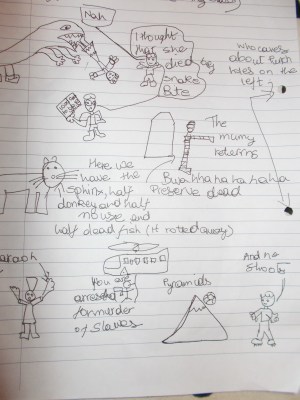 Nah
I thought
that she
died by
snake
Bite
who cares
about punch
holes on the
left
The
mumy
returns
Bwa hha ha ha ha ha
Preserve dead
Here we
have the
sphinx, half
donkey and half
mouse and
half dead fish (it rotted away)
Pharaoh
You are
arrested
for murder
of slaves
Pyramids
And no